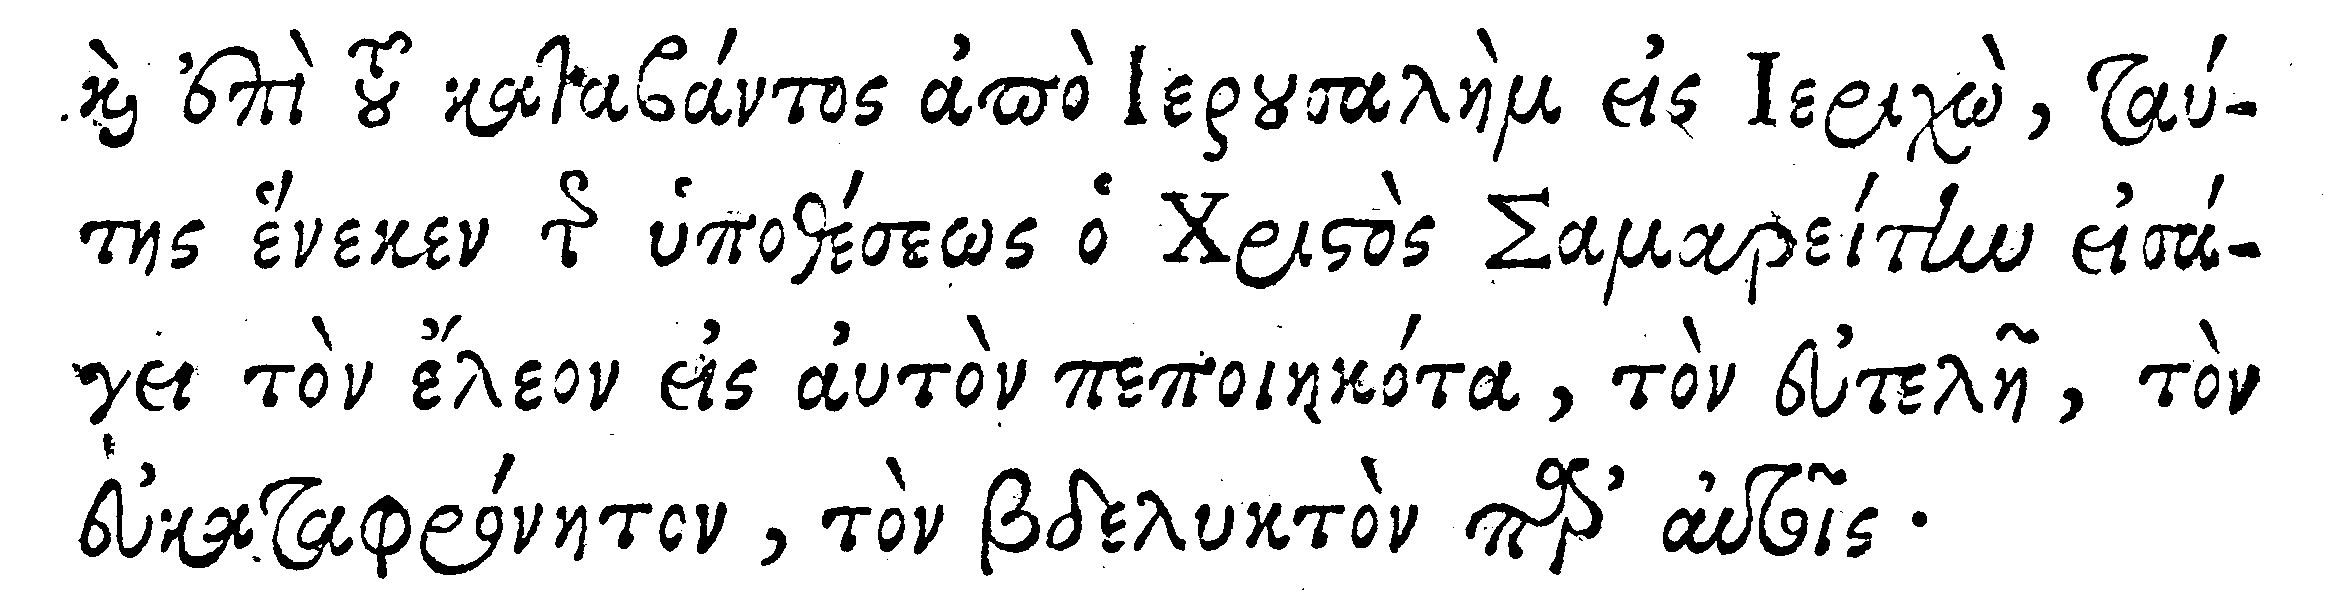 καὶ ἐπὶ τοῦ καταβάντος ἀπὸ Ιερουσαλὴμ εἰς Ιεριχὼ, ταύ-
της ἕνεκεν τῆς ὑποθέσεως ὁ Χριστὸς Σαμαρείτην εἰσά-
γει τὸν ἔλεον εἰς αὐτὸν πεποιηκότα, τὸν εὐτελῆ, τὸν
εὐκαταφρόνητον, τὸν βδελυκτὸν παρ' αὐτοῖς.